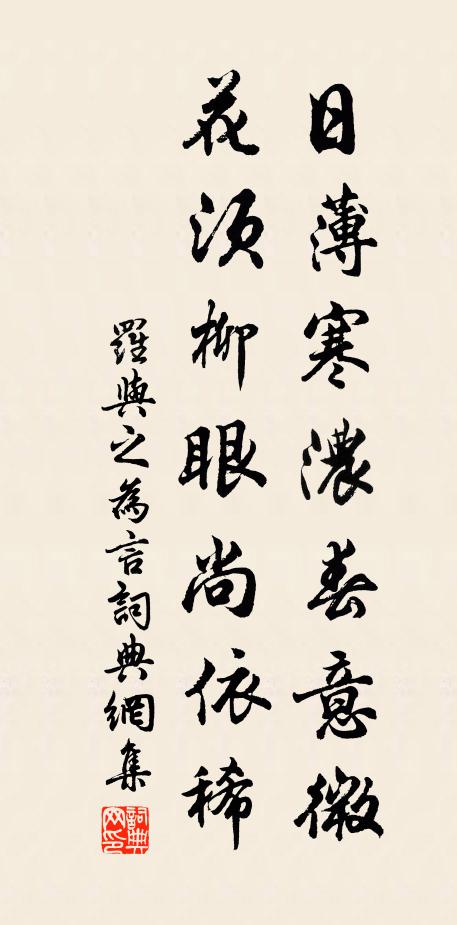 日薄寒濃春意微
花須柳眼尚依稀
羅與之為言詞典網集
詞典網印